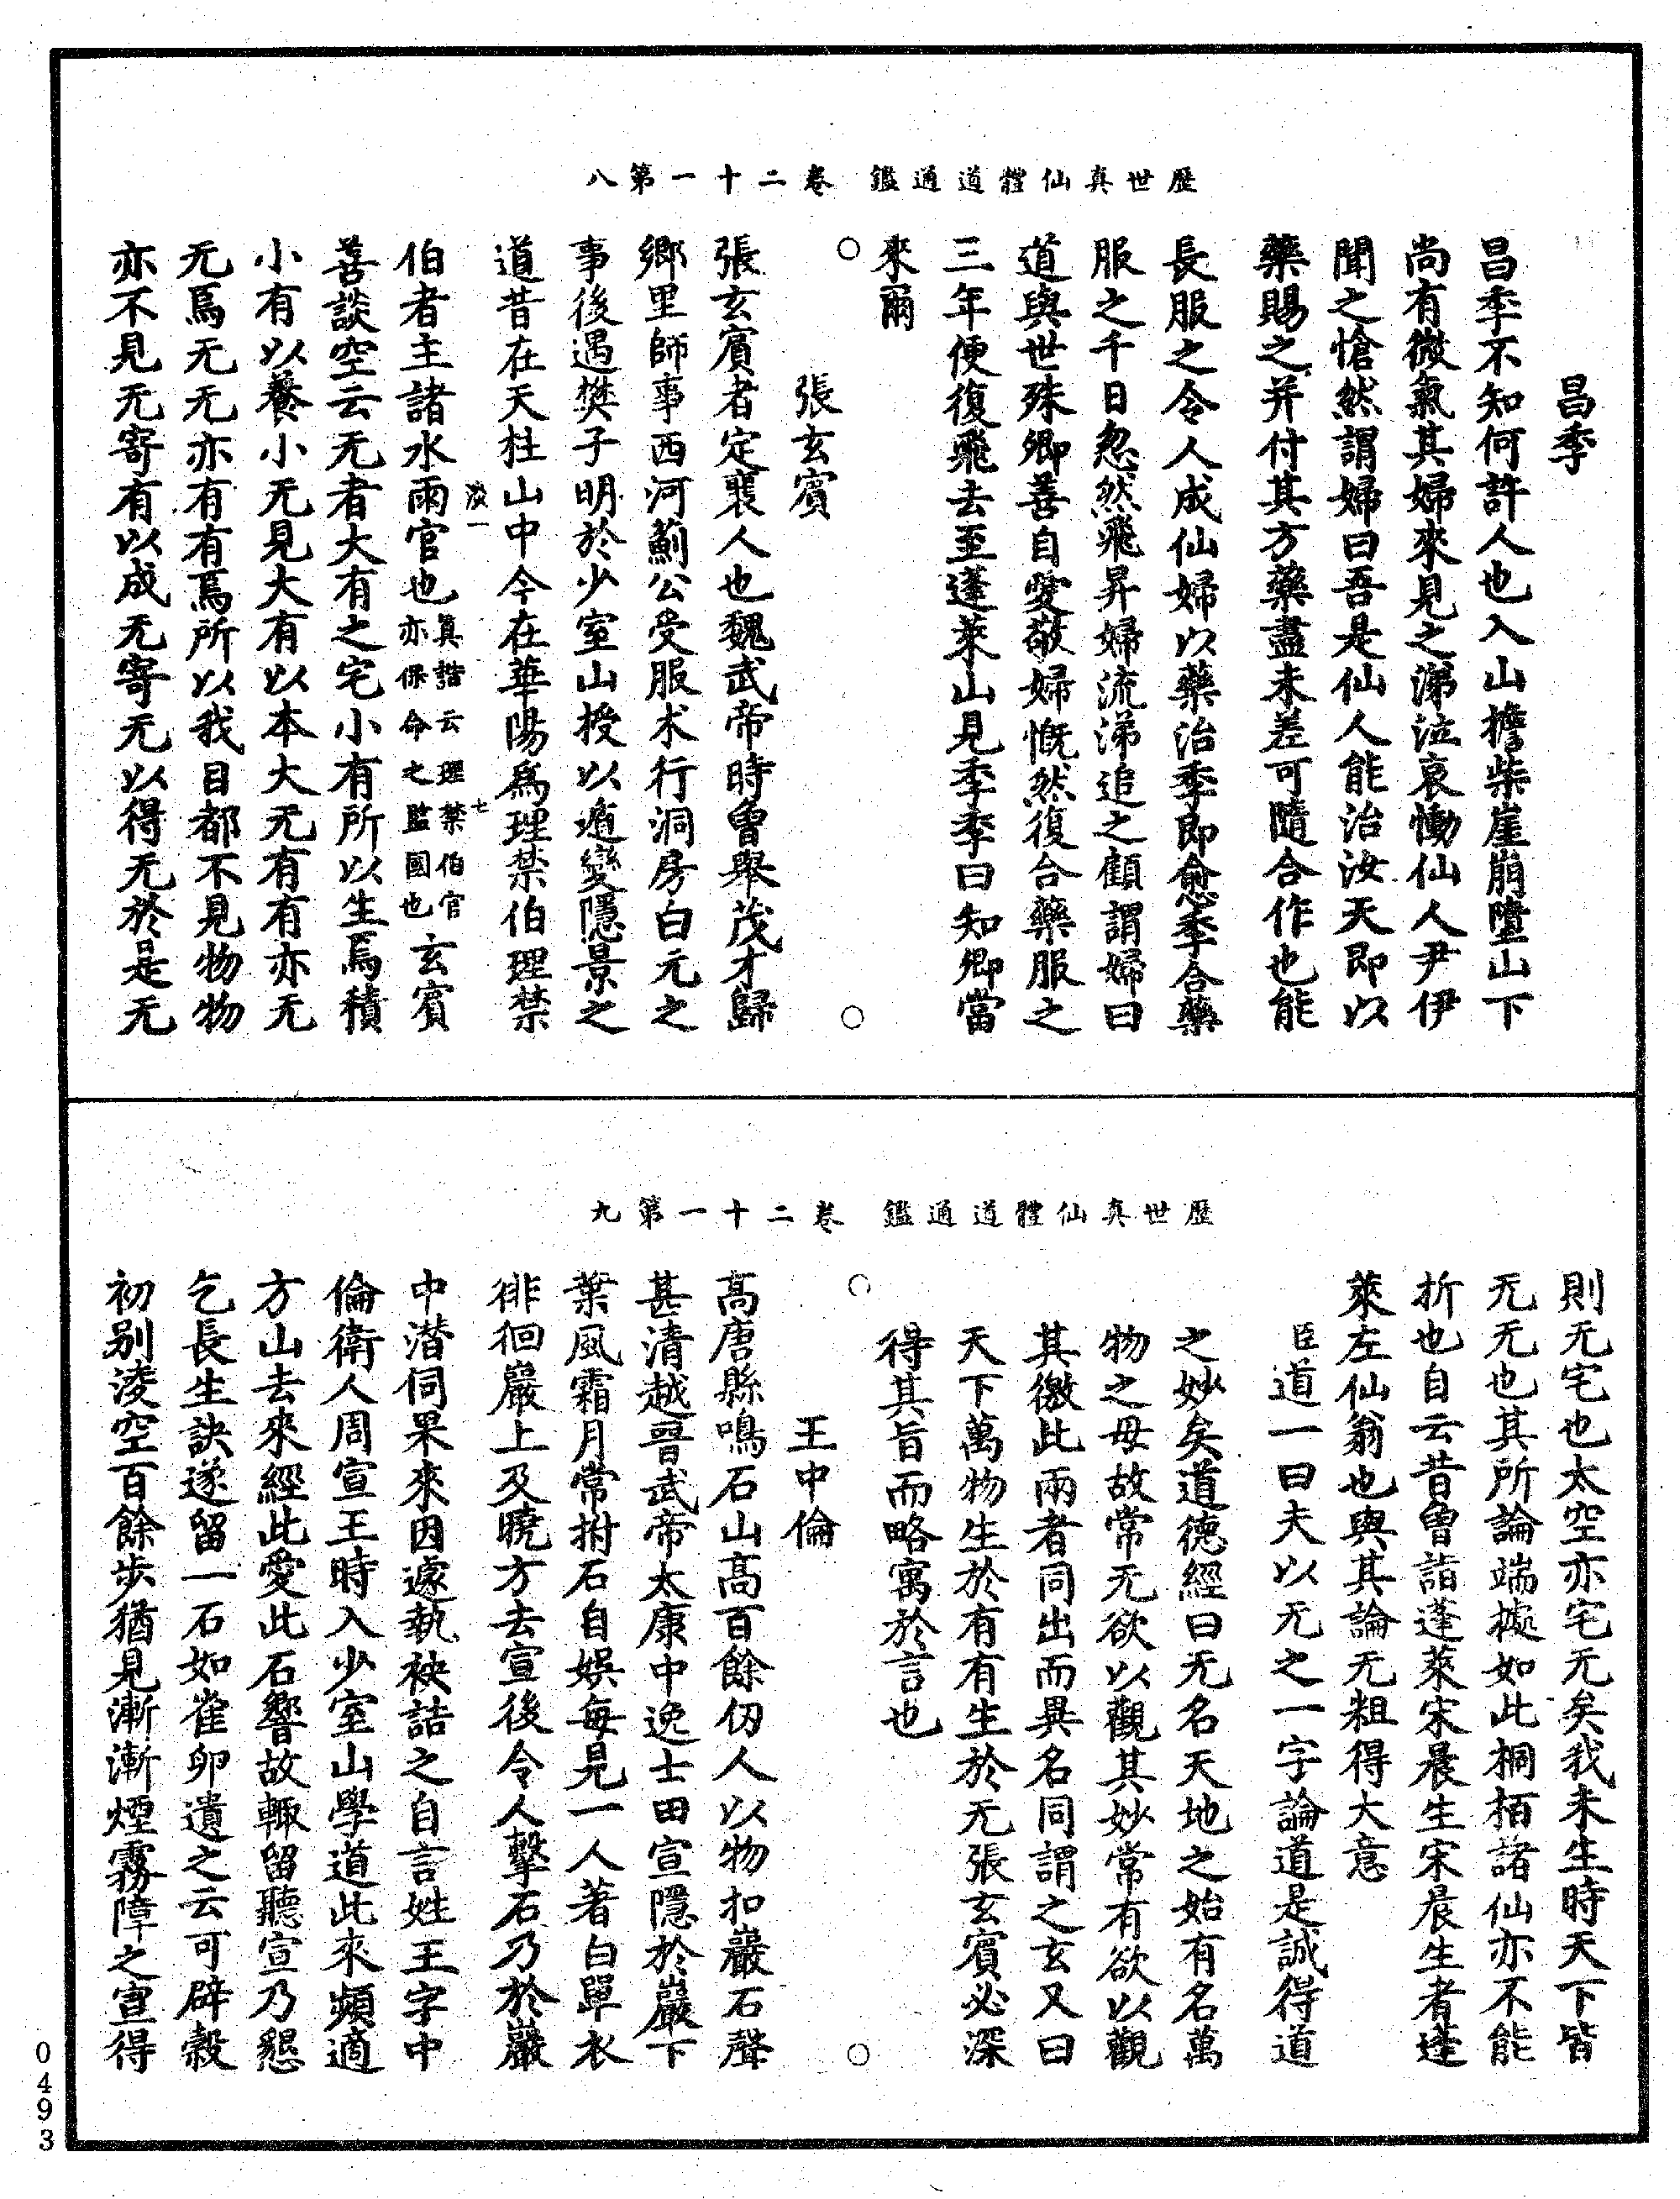 歷世真仙體道通鑑　卷二十一第八
昌季
昌季不知何許人也入山擔柴崖崩墮山下
尚有微氣其婦來見之涕泣哀慟仙人尹伊
聞之愴然謂婦曰吾是仙人能治汝夭即以
藥賜之并付其方藥盡未差可隨合作也能
長服之令人成仙婦以藥治季即愈季合藥
服之千日忽然飛昇婦流涕追之顧謂婦曰
道與世殊卿善自愛敬婦慨然復合藥服之
三年便復飛去至蓬萊山見季季曰知卿當
來爾
張玄賓
張玄賓者定襄人也魏武帝時曾舉茂才歸
鄉里師事西河薊公受服术行洞房白元之
事後遇樊子明於少室山授以遁變隱景之
道昔在天柱山中今在華陽爲理禁伯理禁
伯者主諸水雨官也真誥云理禁伯官亦保命之監國也玄賓
善談空云无者大有之宅小有所以生焉積
小有以養小无見大有以本大无有有亦无
无焉无无亦有有焉所以我目都不見物物
亦不見无寄有以成无寄无以得无於是无
七
歷世真仙體道通鑑　卷二十一第九
則无宅也太空亦宅无矣我未生時天下皆
无无也其所論端據如此桐栢諸仙亦不能
折也自云昔曾詣蓬萊宋晨生宋晨生者蓬
萊左仙翁也與其論无粗得大意
臣道一曰夫以无之一字論道是誠得道
之妙矣道德經曰无名天地之始有名萬
物之母故常无欲以觀其妙常有欲以觀
其徼此兩者同出而異名同謂之玄又曰
天下萬物生於有有生於无張玄賓必深
得其旨而略寓於言也
王中倫
高唐縣鳴石山高百餘仞人以物扣巖石聲
甚清越晉武帝太康中逸士田宣隱於巖下
葉風霜月常拊石自娛每見一人著白單衣
徘徊巖上及曉方去宣後令人擊石乃於巖
中潜伺果來因遽執袂詰之自言姓王字中
倫衛人周宣王時入少室山學道此來頻適
方山去來經此愛此石響故輙留聽宣乃懇
乞長生訣遂留一石如雀卵遺之云可辟穀
初别淩空百餘步猶見漸漸煙霧障之宣得
0493